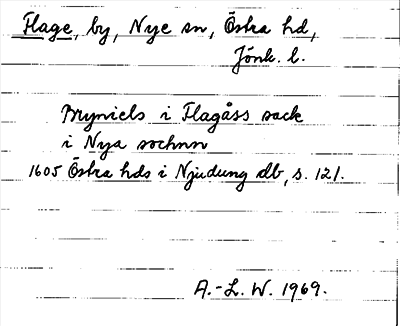 Flage, by, Nye sn, Östra hd,
Jönk. l.
Bryniels i Flagåss sack
i Nya sochnn
1605 Östra hds i Njudung db, s. 121.
A.-L. W. 1969.